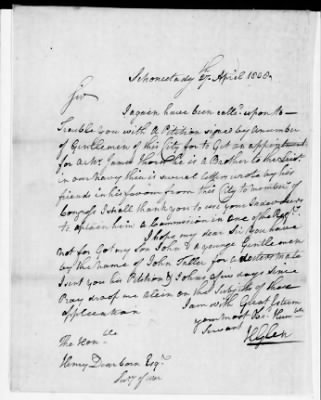 Schonectady 27th April 1808
Sir
I aguen have been call'd upon to
Trouble you with A Petition signed by A number
of Gentlemen of this City for to Get an appointment
for a Mr James Thorn he is a Brother to the
in our Navy their is several letters wrote by his
friends in his favour from this City to members of
Congress I shall thank you to use your Indeavours
to obtain him a Commission in one of the Regts
I hope my dear Sir You have
not for Got my Son John & a younge Gentleman
by the name of John Fuller for a
I sent you his Petition & Johns a few days since
Pray drop me a line on the Subject of these
application
I am with Great Esteem
your most Obt Humble
Servant
H Glen
The Honble
Henry Dearborn Esqr
Secy of War